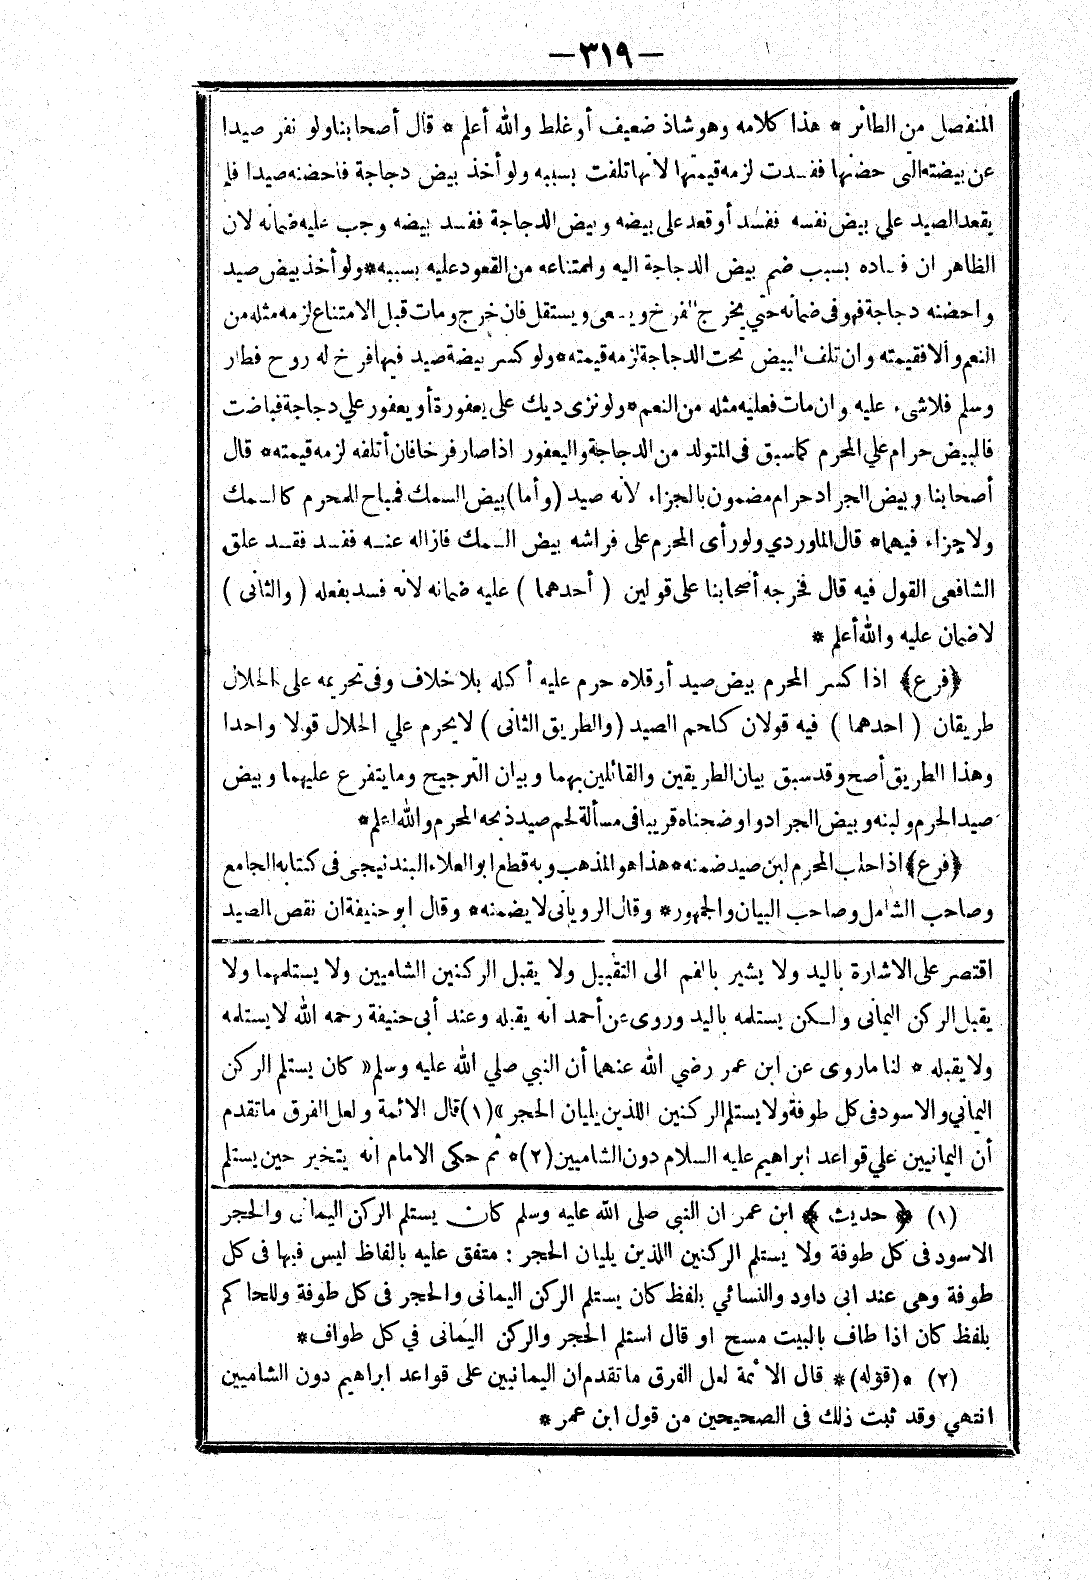 —٣١٩—
المنفصل من الطائر * هذا كلامه وهو شاذ ضعيف أو غلط والله أعلم * قال أصحابنا ولو نفر صيدا
عن بيضته التى حضنها ففسدت لزمه قيمتها لانها تلفت بسببه ولو أخذ بيض دجاجة فاحضنه صيدا فلم
يقعد الصيد علي بيض نفسه ففسد أو قعد على بيضه وبيض الدجاجة ففسد بيضه وجب عليه ضمانه لان
الظاهر ان فساده بسبب ضم بيض الدجاجة اليه ولامتناعه من القعود عليه بسببه * ولو أخذ بيض صيد
واحضنه دجاجة فهو فى ضمانه حتي يخرج الفرخ ويسعى ويستقل فان خرج ومات قبل الامتناع لزمه مثله من
النعم والا فقيمته وان تلف البيض تحت الدجاجة لزمه قيمته * ولو كسر بيضة صيد فيها فرخ له روح فطار
وسلم فلاشىء عليه وان مات فعليه مثله من النعم * ولو نزى ديك على يعفورة أو يعفور علي دجاجة فباضت
فالبيض حرام علي المحرم كما سبق فى المتولد من الدجاجة واليعفور اذا صار فرخا فان أتلفه لزمه قيمته * قال
أصحابنا وبيض الجراد حرام مضمون بالجزاء لانه صيد (وأما) بيض السمك فمباح للمحرم كالسمك
ولا جزاء فيهما * قال الماوردي ولو رأى المحرم على فراشه بيض السمك فازاله عنه ففسد فقد علق
الشافعى القول فيه قال فخرجه أصحابنا على قولين ( أحدهما ) عليه ضمانه لانه فسد بفعله ( والثانى )
لا ضمان عليه والله أعلم *
﴿فرع﴾ اذا كسر المحرم بيض صيد أو قلاه حرم عليه أكله بلا خلاف وفى تحريمه على الحلال
طريقان ( احدهما ) فيه قولان كلحم الصيد ( والطريق الثانى ) لا يحرم علي الحلال قولا واحدا
وهذا الطريق أصح وقد سبق بيان الطريقين والقائلين بهما وبيان الترجيح وما يتفرع عليهما وبيض
صيد الحرم ولبنه وبيض الجراد واوضحناه قريبا فى مسألة لحم صيد ذبحه المحرم والله اعلم *
﴿فرع﴾ اذا حلب المحرم لبن صيد ضمنه * هذا هو المذهب وبه قطع ابو العلاء البندنيجى فى كتابه الجامع
وصاحب الشامل وصاحب البيان والجمهور * وقال الرويانى لا يضمنه * وقال ابو حنيفة ان نقص الصيد
اقتصر على الاشارة باليد ولا يشير بالفم الى التقبيل ولا يقبل الركنين الشاميين ولا يستلمهما ولا
يقبل الركن اليمانى ولكن يستلمه باليد وروى عن أحمد انه يقبله وعند أبى حنيفة رحمه الله لا يستلمه
ولا يقبله * لنا ماروى عن ابن عمر رضي الله عنهما أن النبي صلي الله عليه وسلم « كان يستلم الركن
اليماني والاسود فى كل طوفة ولا يستلم الركنين اللذين يليان الحجر » (١) قال الائمة ولعل الفرق ما تقدم
أن اليمانيين علي قواعد ابراهيم عليه السلام دون الشاميين (٢) * ثم حكى الامام انه يتخير حين يستلم
(١) ﴿ حديث ﴾ ابن عمر ان النبي صلى الله عليه وسلم كان يستلم الركن اليمانى والحجر
الاسود فى كل طوفة ولا يستلم الركنين اللذين يليان الحجر : متفق عليه بالفاظ ليس فيها فى كل
طوفة وهى عند ابى داود والنسائي بلفظ كان يستلم الركن اليمانى والحجر فى كل طوفة وللحاكم
بلفظ كان اذا طاف بالبيت مسح او قال استلم الحجر والركن اليمانى في كل طواف *
(٢) * (قوله) * قال الائمة لعل الفرق ما تقدم ان اليمانيين على قواعد ابراهيم دون الشاميين
انتهي وقد ثبت ذلك فى الصحيحين من قول ابن عمر *